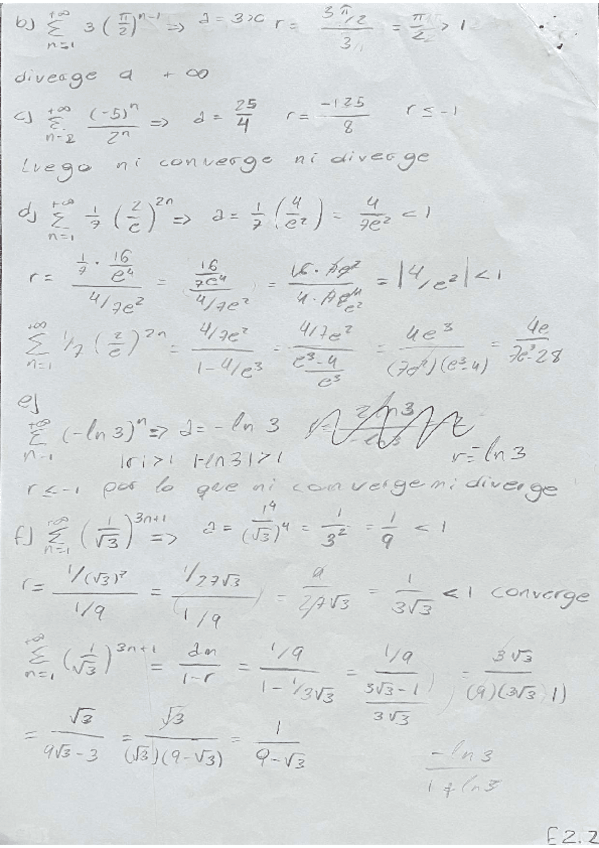 b) +∞ Σ n=1 3 (π/2)^(n-1) => a = 3>0 r = (3 π/2)/3 = π/2 > 1
diverge a +∞
c) +∞ Σ n=2 (-5)^n / 2^n => a = 25/4 r = (-125)/8 r ≤ -1
Luego ni converge ni diverge
d) +∞ Σ n=1 1/7 (2/e)^(2n) => a = 1/7 (4/e²) = 4/7e² < 1
r = (1/7 · 16/e⁴)/(4/7e²) = (16/7e⁴)/(4/7e²) = (16 · 7e²)/(4 · 7e⁴) = |4/e²| < 1
+∞ Σ n=1 1/7 (2/e)^(2n) = (4/7e²)/(1 - 4/e³) = (4/7e²)/((e³-4)/e³) = 4e³/((7e²)(e³-4)) = 4e/(7e³-28)
e)
+∞ Σ n=1 (-ln 3)^n => a = - ln 3 r = -ln 3
|r| > 1 |-ln 3| > 1
r ≤ -1 por lo que ni converge ni diverge
f) +∞ Σ n=1 (1/√3)^(3n+1) => a = 1⁴/(√3)⁴ = 1/3² = 1/9 < 1
r = (1/(√3)⁷)/(1/9) = (1/27√3)/(1/9) = 9/27√3 = 1/3√3 < 1 converge
+∞ Σ n=1 (1/√3)^(3n+1) = am/(1-r) = (1/9)/(1 - 1/3√3) = (1/9)/((3√3 - 1)/3√3) = 3√3/((9)(3√3 1))
= √3/(9√3 - 3) = √3/((√3)(9-√3)) = 1/(9-√3)
-ln 3 / 1 + ln 3
E2.2